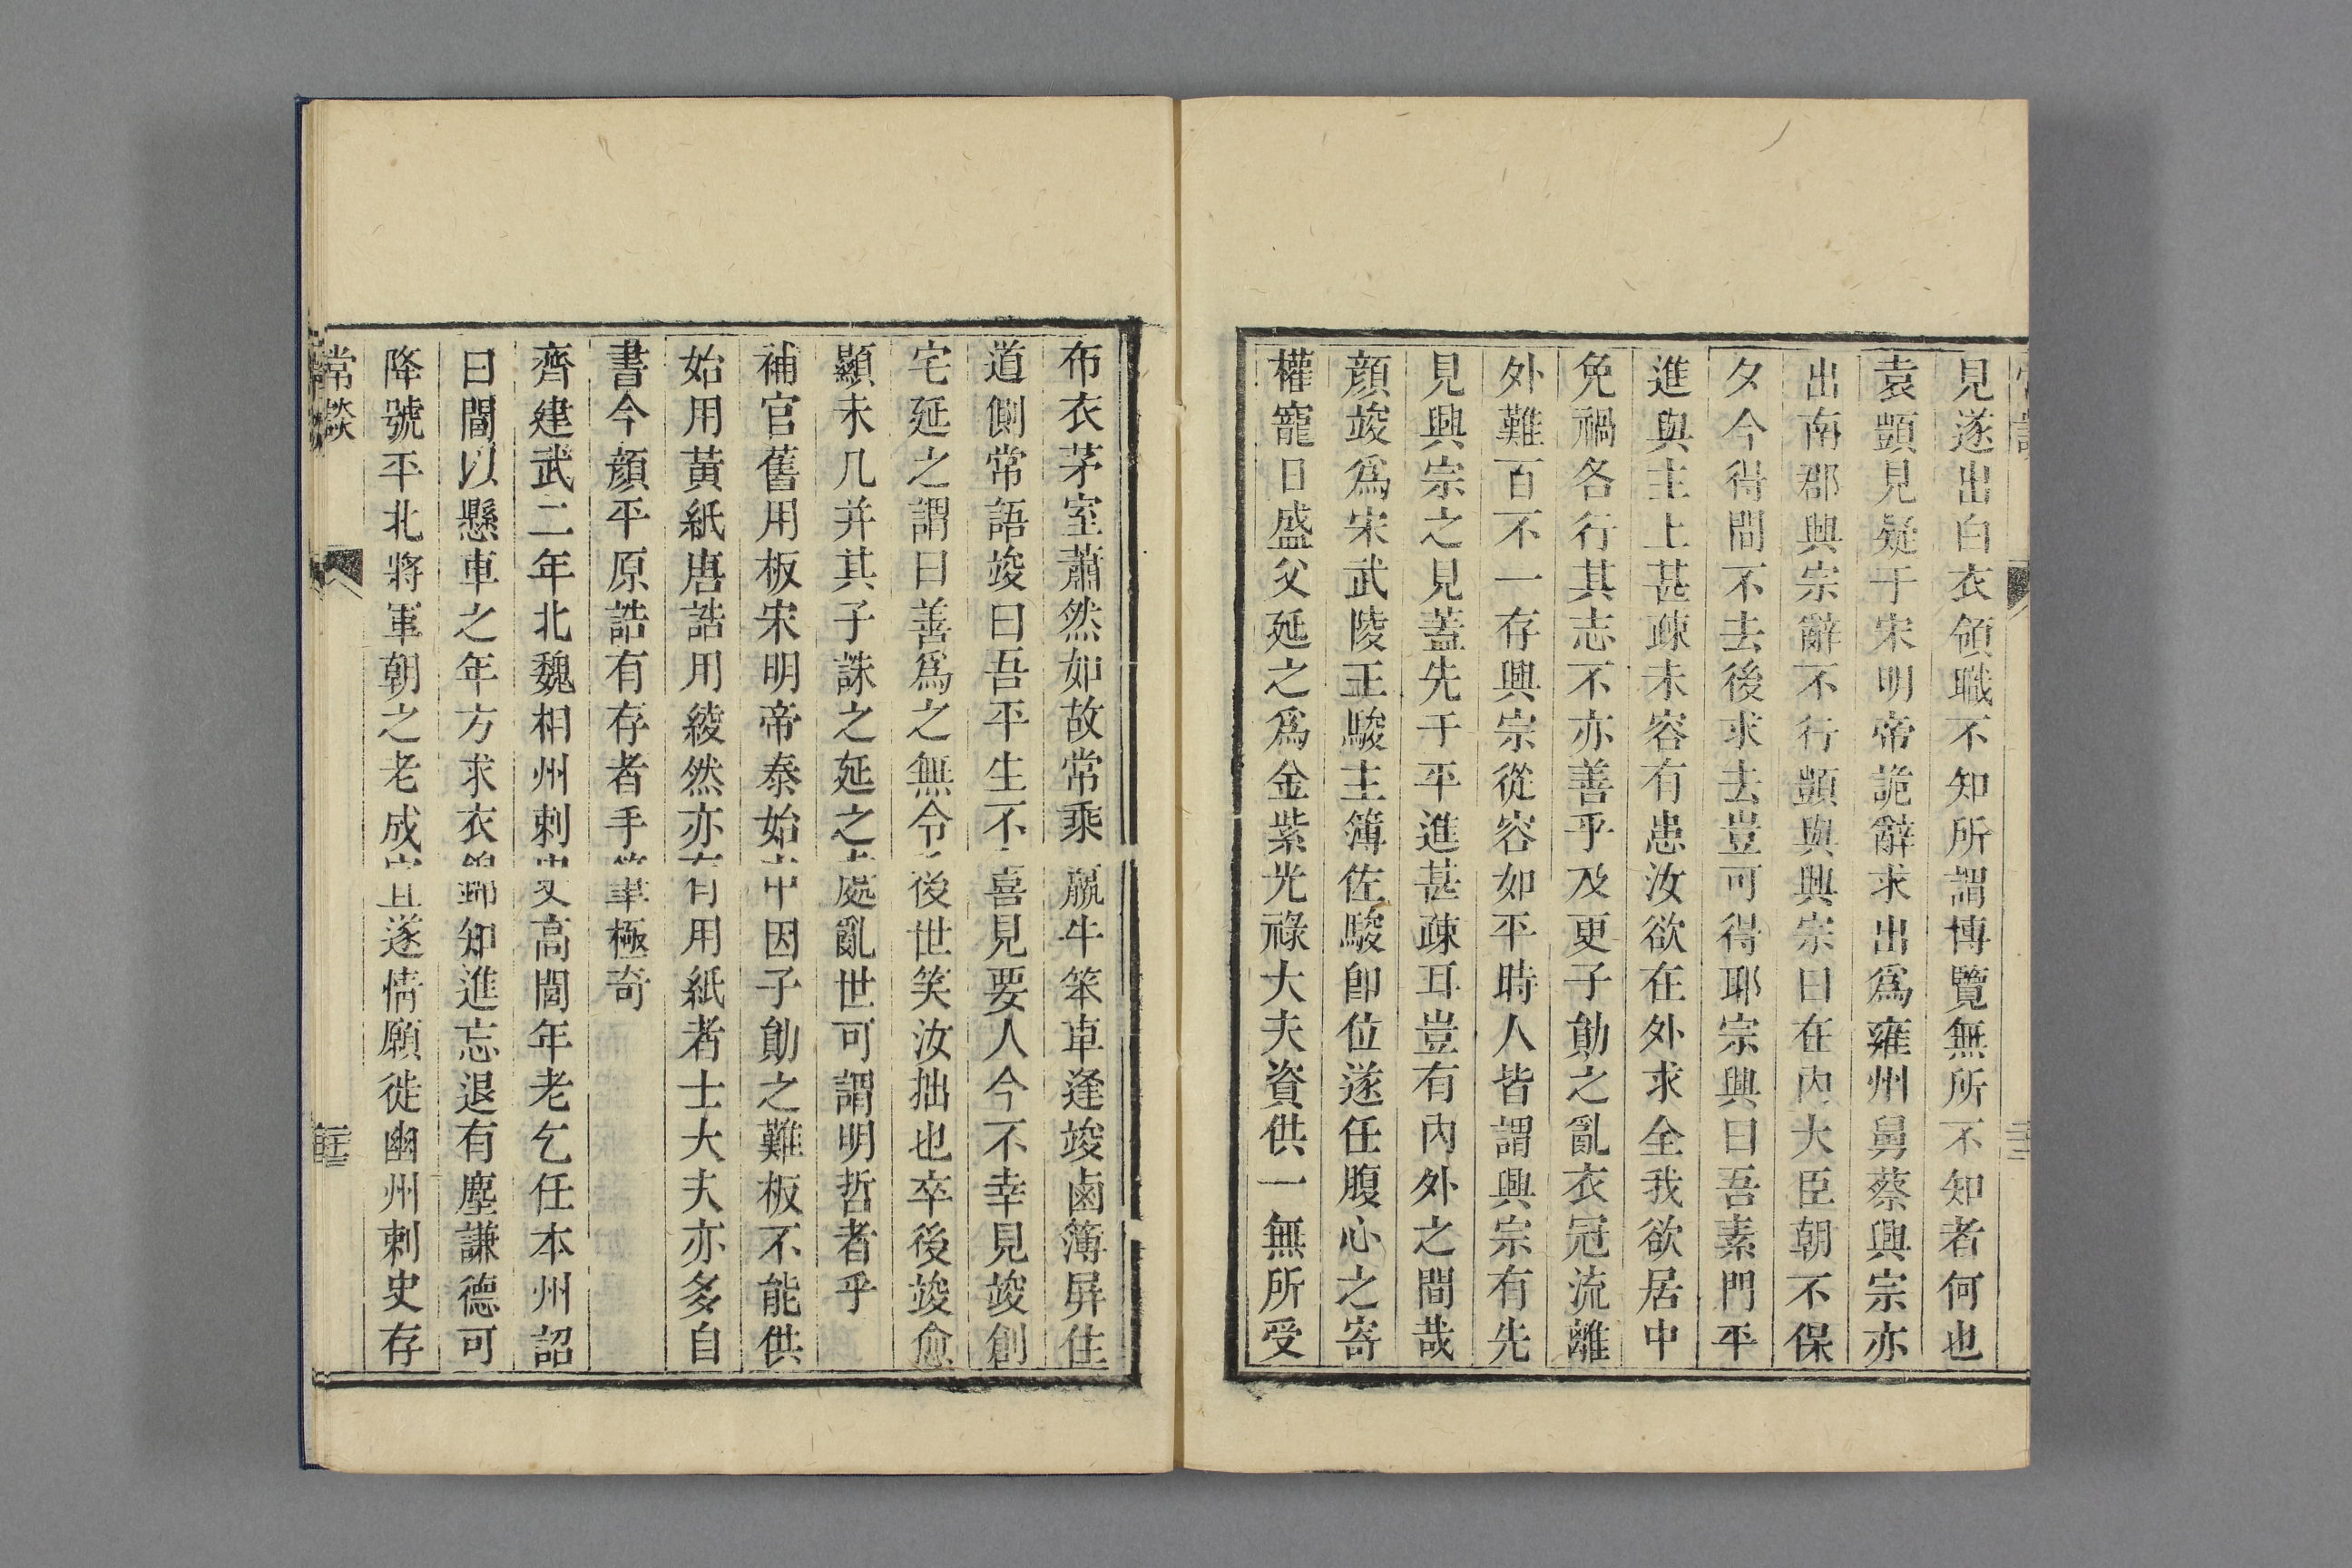 見遂出白衣領職不知所謂博覽無所不知者何也
袁顗見疑于宋明帝詭辭求出爲雍州舅蔡興宗亦
出南郡興宗辭不行顗與興宗曰在內大臣朝不保
夕今得間不去後求去豈可得耶宗興曰吾素門平
進與主上甚疎未容有患汝欲在外求全我欲居中
免禍各行其志不亦善乎及更子勛之亂衣冠流離
外難百不一存興宗從容如平時人皆謂興宗有先
見興宗之見蓋先于平進甚疎耳豈有內外之間哉
顔竣爲宋武陵王駿主簿佐駿卽位遂任腹心之寄
權寵日盛父延之爲金紫光祿大夫資供一無所受
布衣茅室蕭然如故常乘羸牛笨車逢竣鹵簿屏住
道側常語竣曰吾平生不喜見要人今不幸見竣創
宅延之謂曰善爲之無令後世笑汝拙也卒後竣愈
顯未几并其子誅之延之處亂世可謂明哲者乎
補官舊用板宋明帝泰始中因子勛之難板不能供
始用黃紙唐誥用綾然亦有用紙者士大夫亦多自
書今顔平原誥有存者手筆極奇
齊建武二年北魏相州刺史高閭年老乞任本州詔
曰閭以懸車之年方求衣錦知進忘退有塵謙德可
降號平北將軍朝之老成宜遂情願徙幽州刺史存
常談